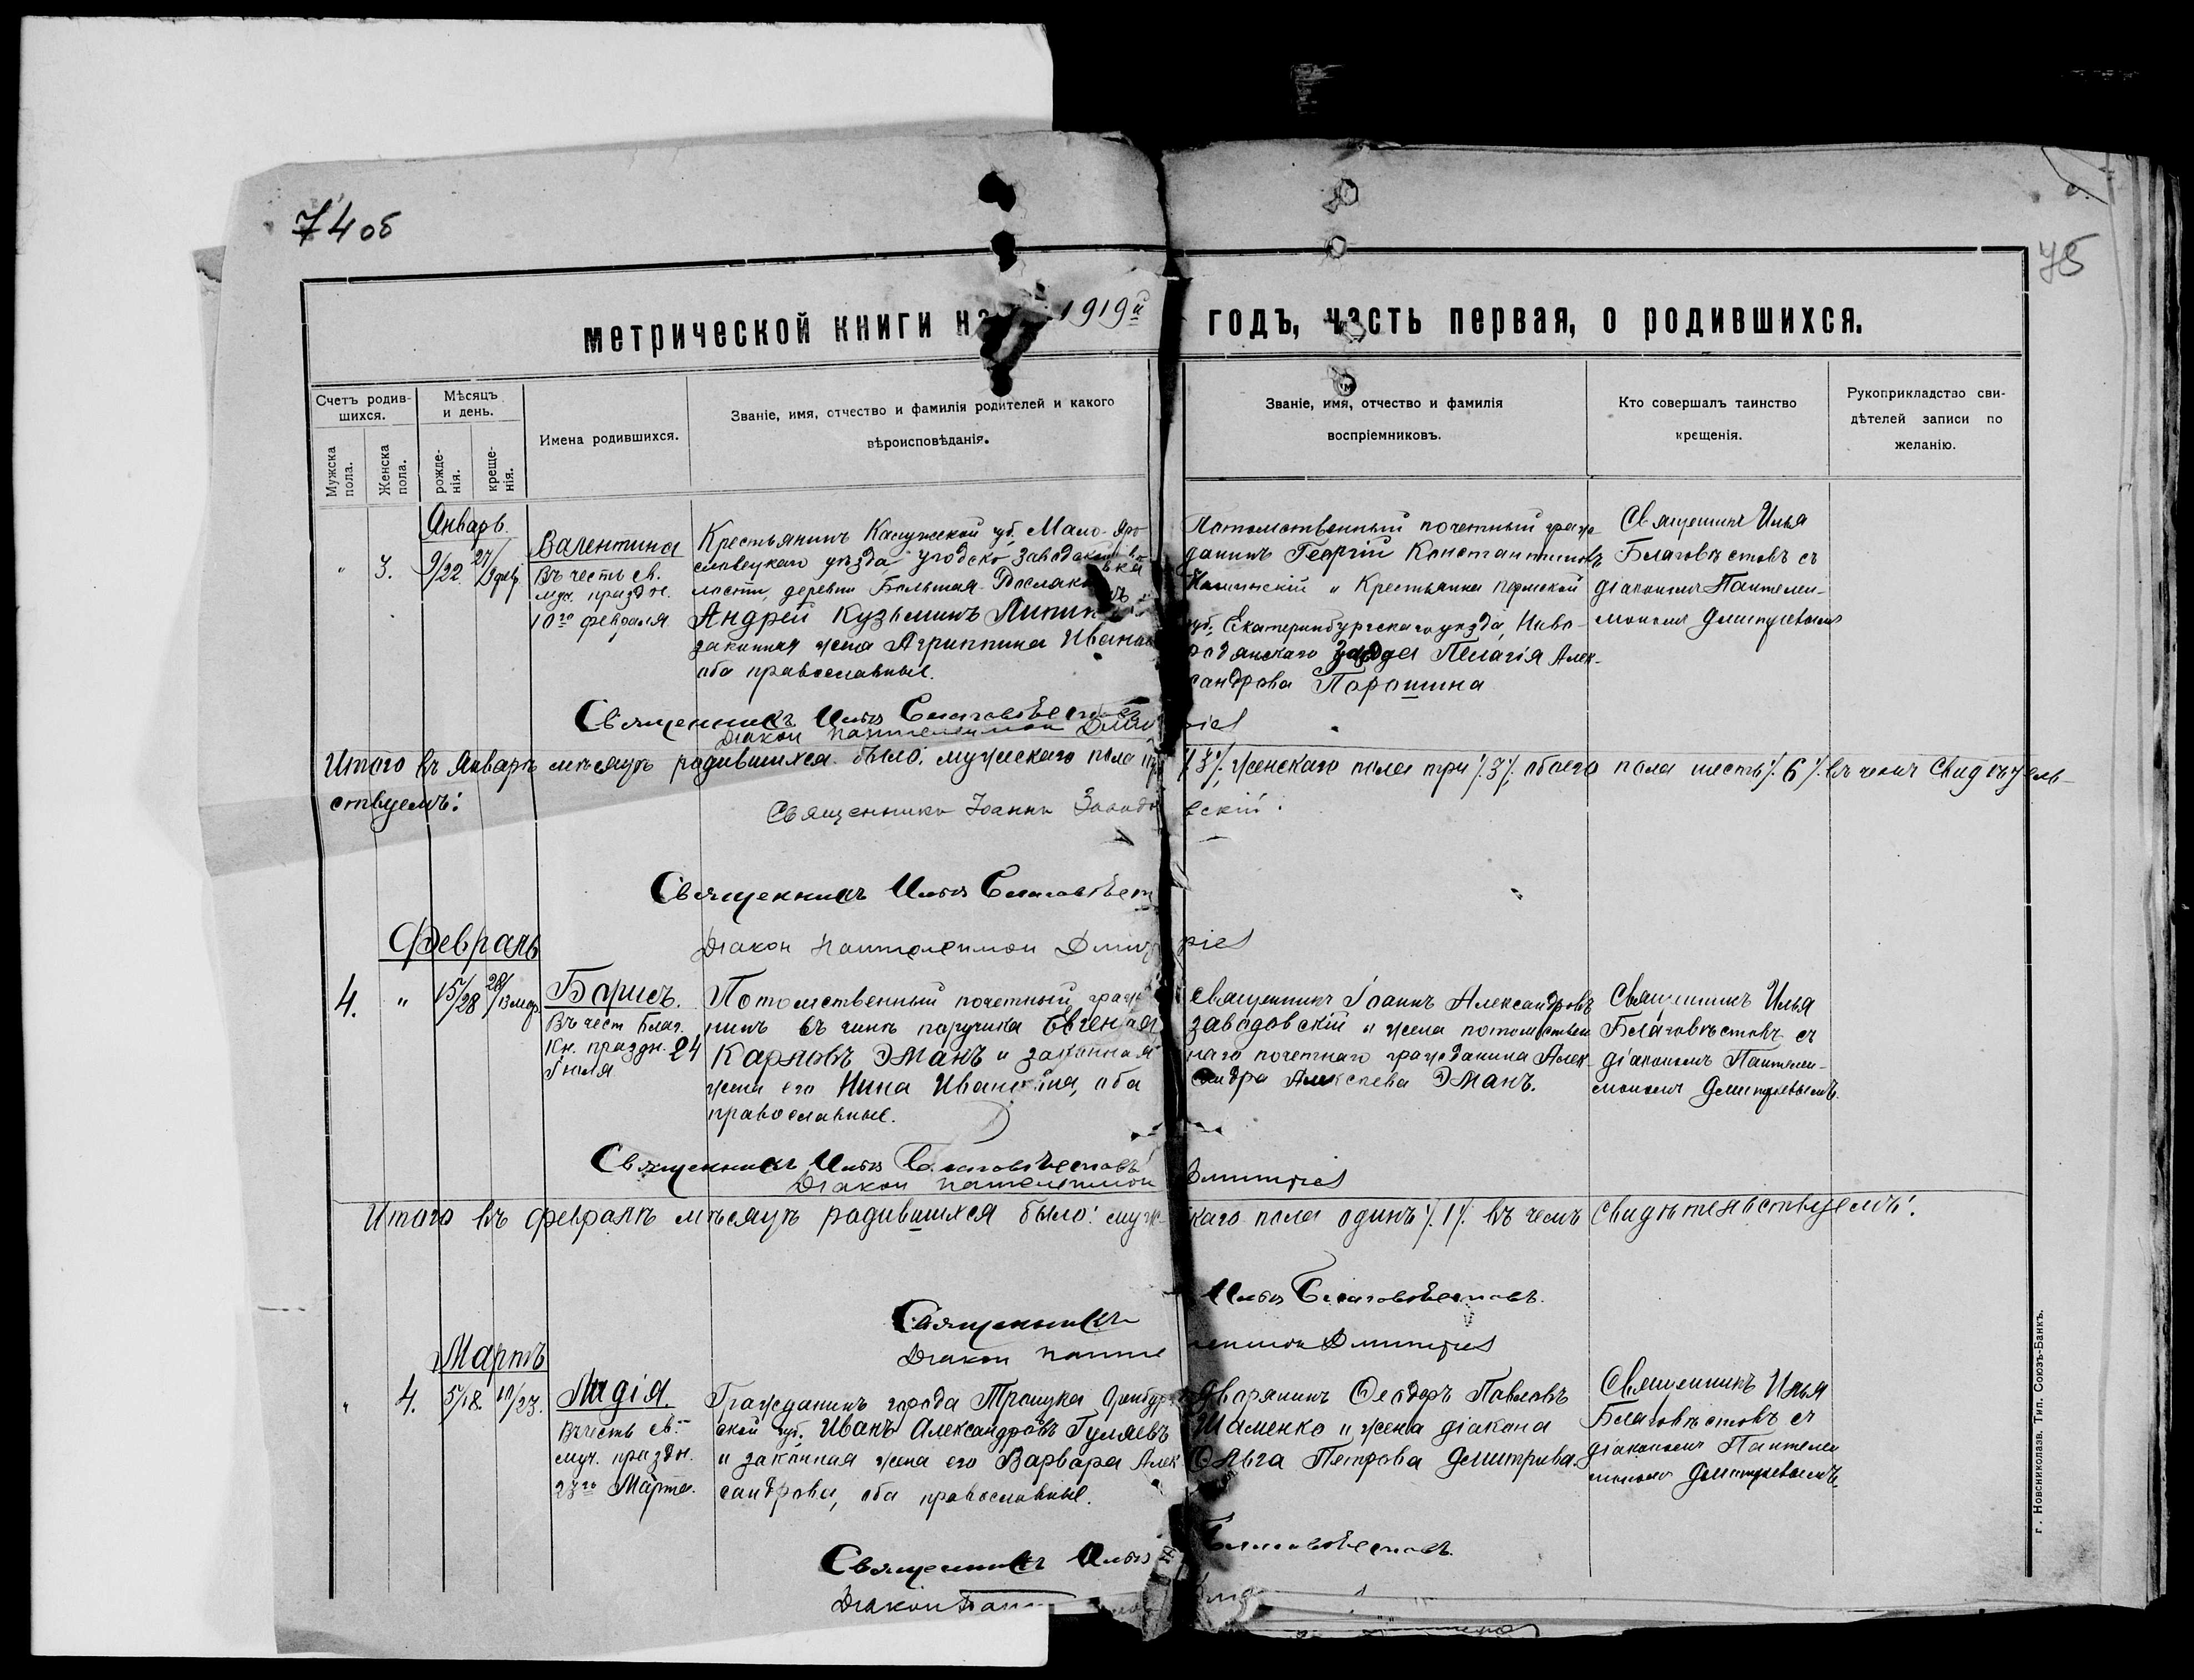 74 об
75
метрической книги на 1919й годъ, часть первая, о родившихся.
Счетъ родив-
шихся.
Мужска
пола.
Женска
пола.
Мѣсяцъ
и день.
рожде-
нія.
креще-
нія.
Имена родившихся.
Званіе, имя, отчество и фамилія родителей и какого
вѣроисповѣданія.
Званіе, имя, отчество и фамилія
воспріемниковъ.
Кто совершалъ таинство
крещенія.
Рукоприкладство сви-
дѣтелей записи по
желанію.
Январь.
" 3. 9/22. 27/9 фев.
Валентина
Въ честь св.
муч. праздн.
10го февраля
Крестьянинъ Калужской губ. Мало-Яро-
славецкаго уѣзда Угодско-Заводской во-
лости, деревни Большая
Андрей Кузьминъ
законная жена Агриппина
оба православные.
Потомственный почетный граж-
данинъ Георгій Константиновъ
и Крестьянка Пермской
губ. Екатеринбургскаго уѣзда,
завода Пелагія Алек-
сандрова Порошина
Священникъ Илья
Благовѣстовъ съ
діакономъ Пантелеи-
мономъ Дмитріевымъ
Священникъ Илья Благовѣстовъ
Діакон Пантелеимон
Итого въ Январѣ мѣсяцѣ родившихся было: мужескаго пола три /3/. женскаго пола три /3/. обоего пола шесть /6/. въ чемъ свидѣтель-
ствуемъ:
Священникъ Іоаннъ Заводовскій.
Священникъ Илья Благовѣст
Діакон Пантелеимон
Февраль
4. " 15/28 28/13 мар.
Борисъ.
Въ чест Благ.
Кн. праздн. 24
Іюля
Потомственный почетный
нинъ въ чинѣ поручика Евгеній
Карловъ Эманъ и законная
жена его Нина Иванова, оба
православные.
Священникъ Іоаннъ Александровъ
Заводовскій и жена потомствен
наго почетнаго гражданина Алек-
сандра Алексѣева Эманъ.
Священникъ Илья
Благовѣстовъ съ
діакономъ Пантелеи-
мономъ Дмитріевымъ.
Священникъ Илья Благовѣстовъ
Діакон Пантелеимон
Итого въ Февралѣ мѣсяцѣ родившихся было: муж каго пола одинъ /1/. въ чемъ свидѣтельствуемъ:
Священникъ Илья Благовѣстовъ.
Діакон
Мартъ
" 4. 5/18. 10/23.
Лидія.
Въ честь св.
муч. праздн.
23го Марта.
Гражданинъ города Троицка Оренбург
ской губ. Иванъ Александровъ Гуляевъ
и законная жена его Варвара Алек
сандрова, оба православные.
Дворянинъ Ѳеодоръ Павловъ
Шаменко и жена діакона
Ольга Петрова Дмитріева.
Священникъ Илья
Благовѣстовъ съ
діакономъ Пантелеи
мономъ Дмитріевымъ
Священникъ Илья Благовѣстовъ.
Діакон
г. Новониколаев. Тип. Союзъ-Банкъ.